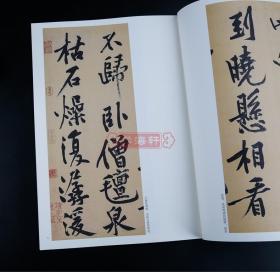 到曉懸相看
不歸卧僧氊泉
枯石燥復潺湲